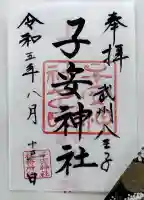 奉拝
武州八王子
子安神社
令和五年八月
十二日